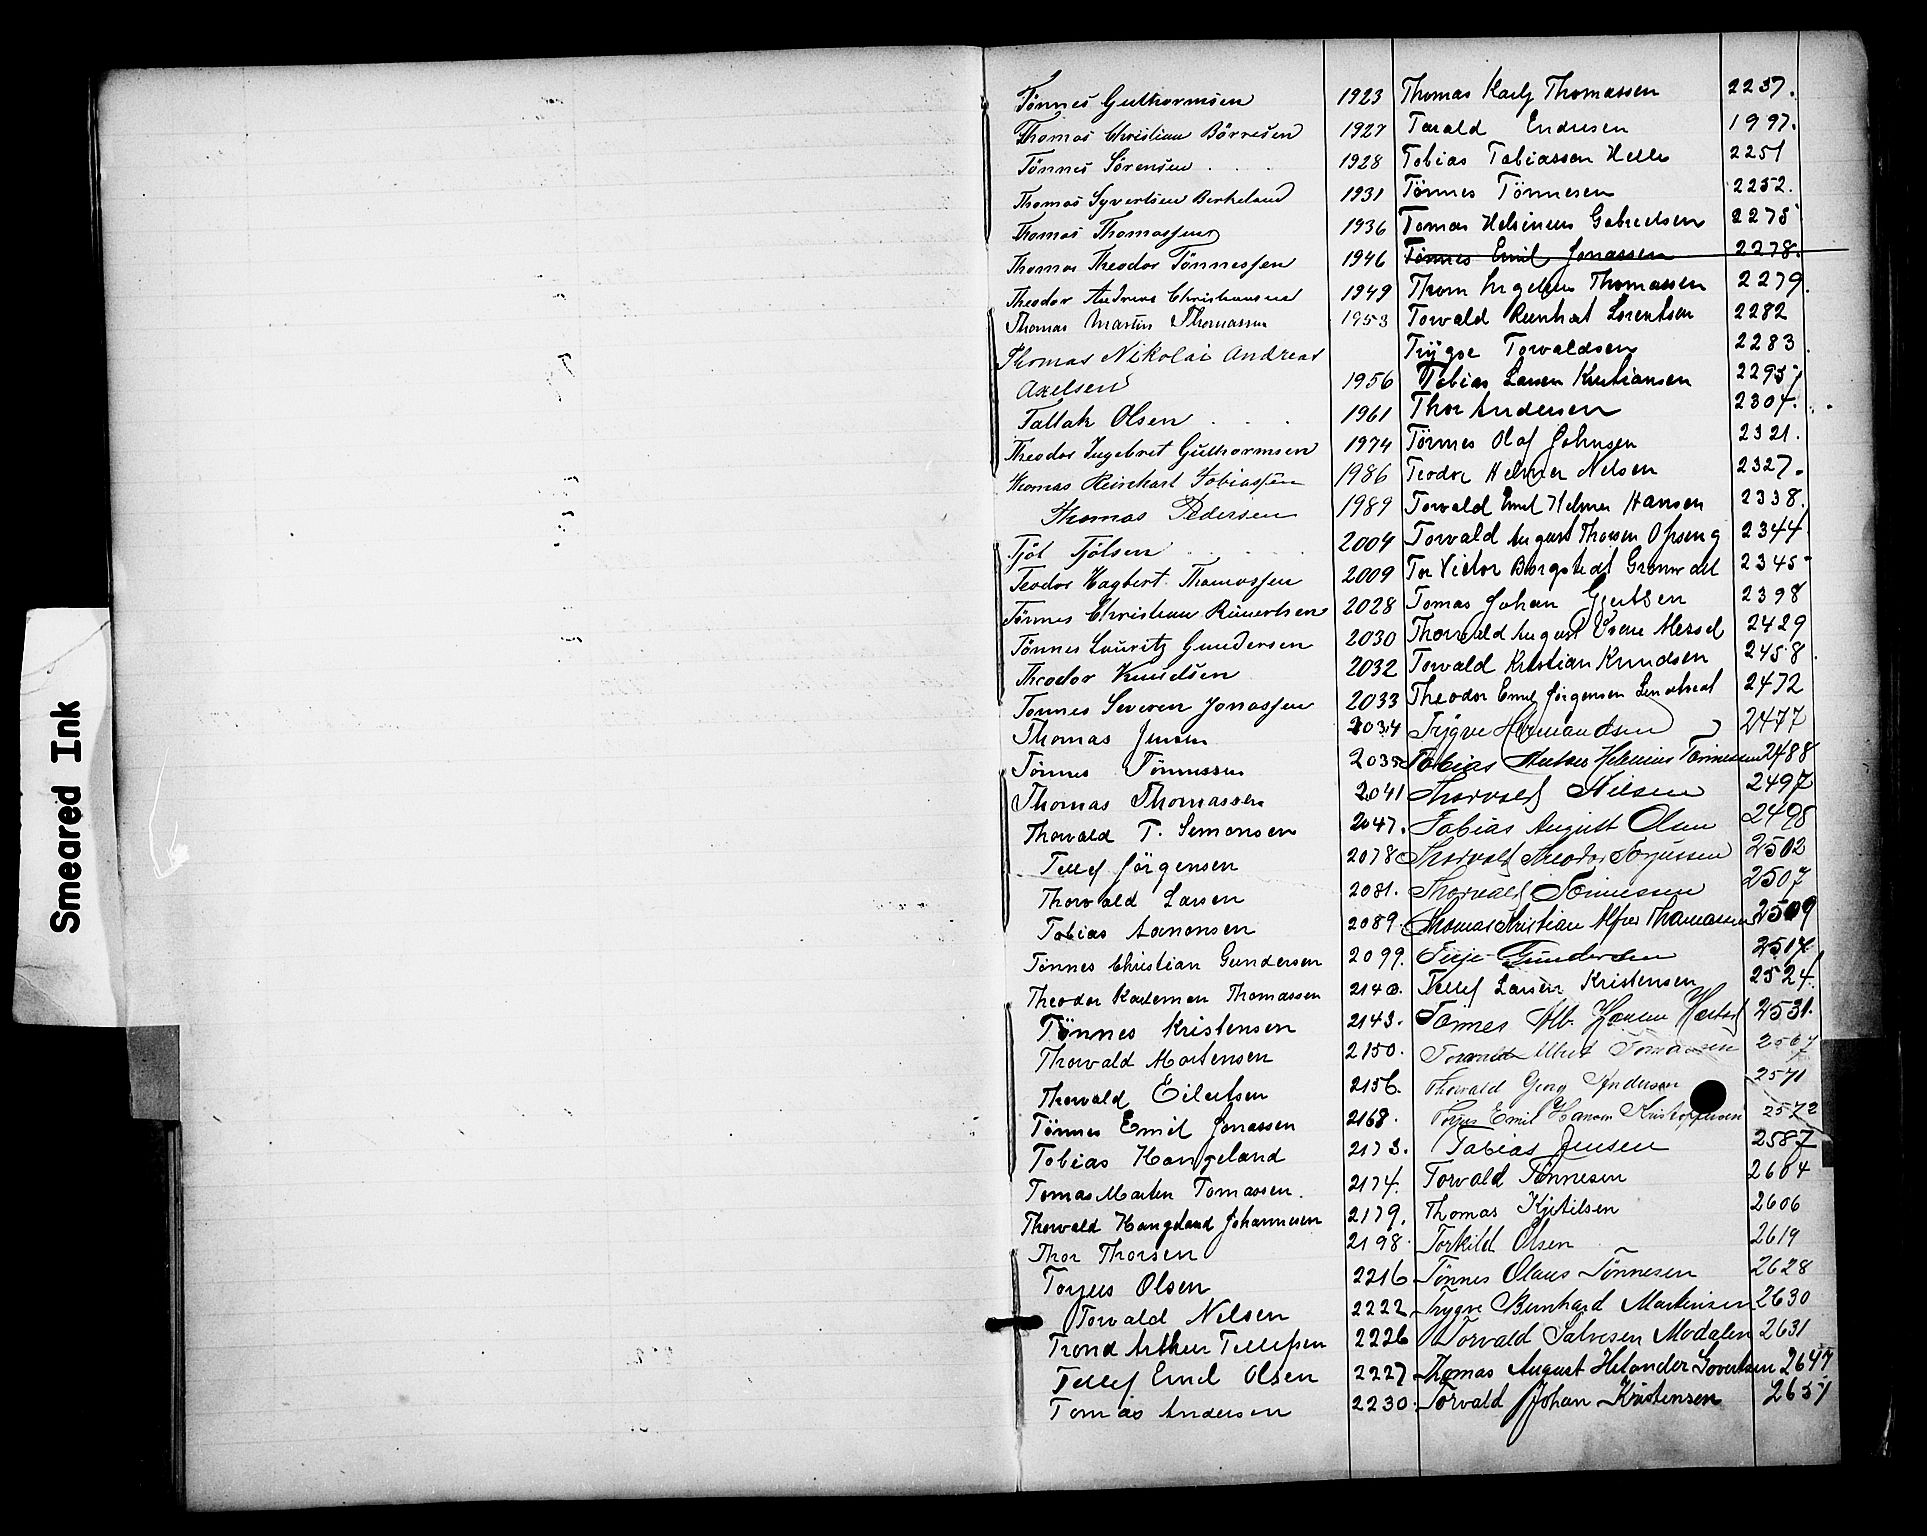 Smeared Ink
Tönnes Guthormsen 1923
Thomas Christian Börresen 1927
Tönnes Sörensen 1928
Thomas Syvertsen Birkeland 1931
Thomas Thomassen 1936
Thomas Theodor Tönnessen 1946
Theodor Andreas Christiansen 1949
Thomas Martin Thomassen 1953
Thomas Nikolai Andreas
Axelsen 1956
Tallak Olsen 1961
Theodor Ingebret Guthormsen 1974
Thomas Reinhart Tobiassen 1986
Thomas Pedersen 1989
Tjöl Tjölsen 2004
Teodor Hagbert Thomassen 2009
Tönnes Christian Reinertsen 2028
Tönnes Lauritz Gundersen 2030
Theodor Knudsen 2032
Tönnes Severin Jonassen 2033
Thomas Jensen 2034
Tönnes Tönnessen 2035
Thomas Thomassen 2041
Thorvald T. Semonsen 2047.
Tellef Jörgensen 2078
Thorvald Larsen 2081.
Tobias Aanonsen 2089.
Tönnes Christian Gundersen 2099.
Theodor Karleman Thomassen 2140.
Tönnes Kristensen 2143.
Thorvald Mortensen 2150.
Thorvald Eilertsen 2156.
Tönnes Emil Jonassen 2168.
Tobias Haugeland 2173.
Tomas Martin Tomassen. 2174.
Thorvald Haugeland Johannesen 2179.
Thor Thorsen 2198.
Torjus Olsen 2216
Torvald Nilsen 2222
Trond Arthur Tellefsen 2226
Tellef Emil Olsen 2227
Tomas Andersen 2230
Thomas Karly Thomassen 2237.
Tarald Endresen 1997.
Tobias Tobiassen Helle 2251
Tönnes Tönnesen 2252.
Tomas Helsineus Gabrielsen 2275
Tönnes Emil Jonassen 2278.
Thom Ingelius Thomassen 2279.
Torvald Reinhat Lorentsen 2282
Trygve Torvaldsen 2283
Tobias Larsen Kristiansen 2295
Thor Andersen 2304.
Tönnes Olaf Johnsen 2321.
Teodor Helmer Nilsen 2327.
Torvald Emil Helmer Hansen 2338.
Torvald August Thorsen 2344
Tor Victor Borgstedt 2345
Tomas Johan Gjertsen 2398
Thorvald August Messel 2429
Torvald Kristian Knudsen 2458.
Theodor Emil Jörgensen 2472
Trygve Hermandsen 2477
Tobias Tönnessen 2488
Thorvald Nilsen 2497
Tobias August Olsen 2498
Thorvald Theodor Torjussen 2502
Thorvald Tönnessen 2507
Thomas Kristian Alfred Thomassen 2509
Terje Gundersen 2517.
Tellef Larsen Kristensen 2524.
Tönnes Alb. Hansen 2531.
Torvald Alfred Tomassen 2567
Thorvald Georg Andersen 2571
Torjus Emil Hansen Kristoffersen 2572
Tobias Jensen 2587
Torvald Tönnesen 2604
Thomas Kjetilsen 2606
Torkild Olsen 2619
Tönnes Olaus Tönnesen 2628
Trygve Bernhard Martinsen 2630
Torvald Salvesen Modalen 2631
Thomas August Helander Sivertsen 2647
Torvald Johan Kristensen 2651